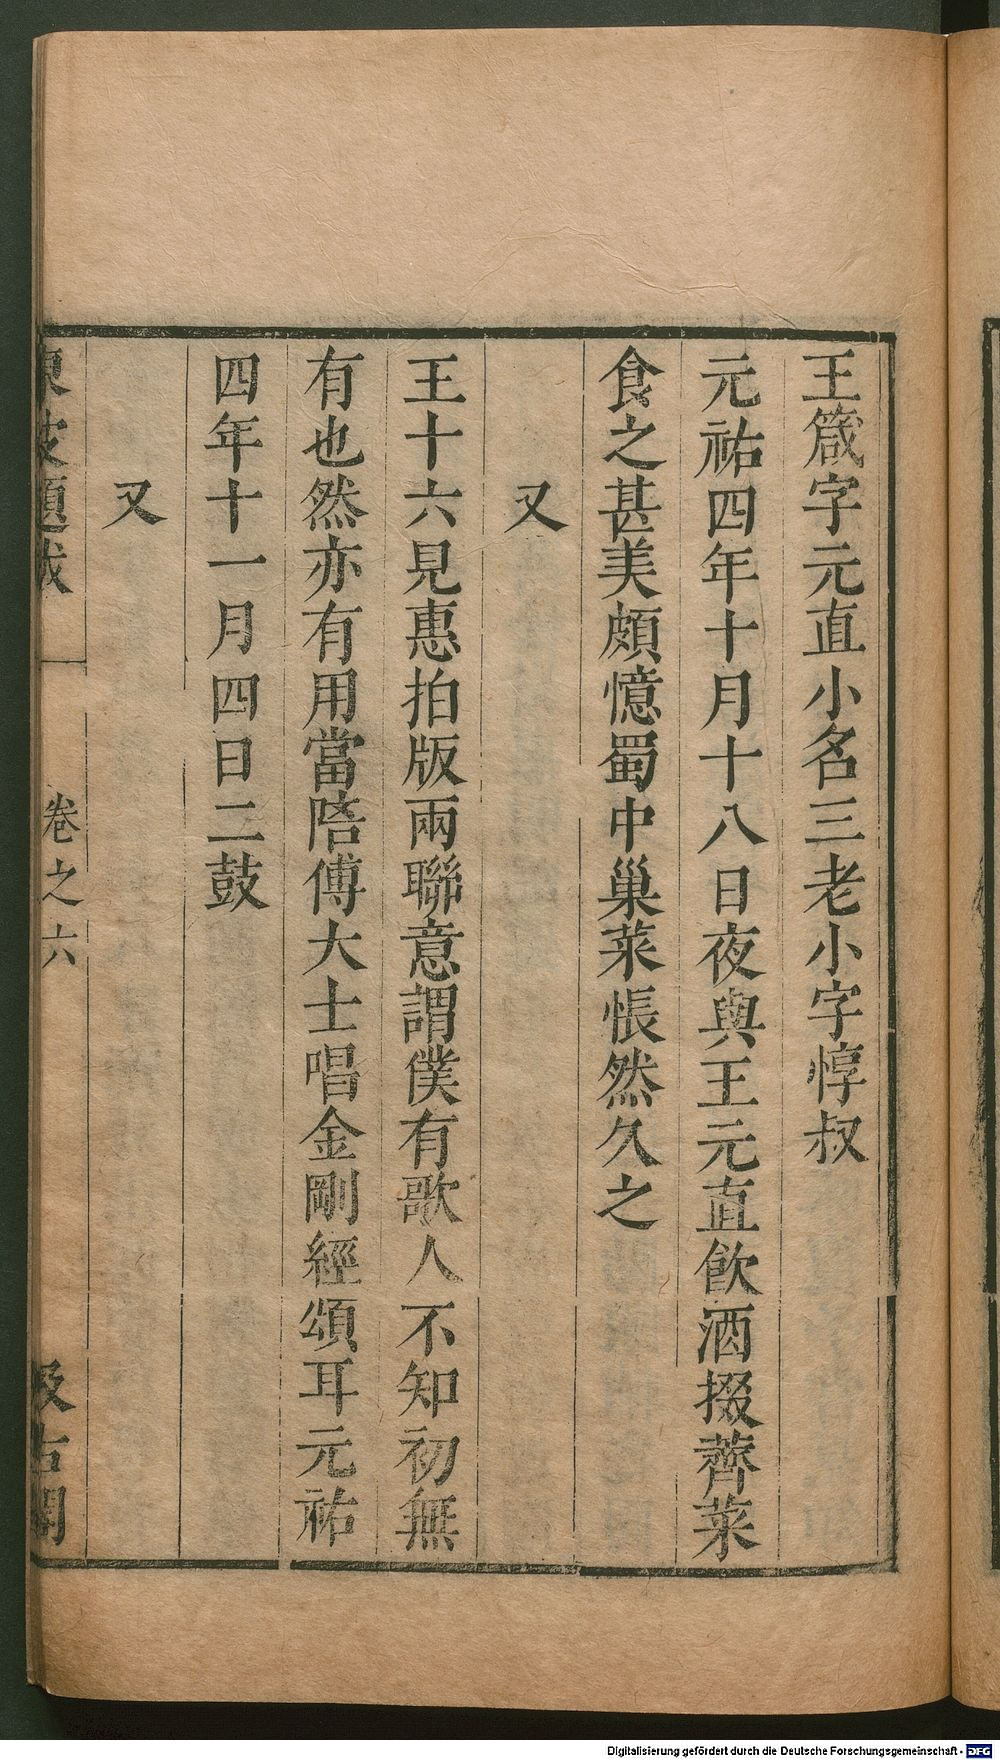 王箴字元直小名三老小字惇叔
元祐四年十月十八日夜與王元直飲酒掇薺菜
食之甚美頗憶蜀中巢菜悵然久之
又
王十六見惠拍版兩聯意謂僕有歌人不知初無
有也然亦有用當陪傅大士唱金剛經頌耳元祐
四年十一月四日二鼓
又
東坡題跋
卷之六
汲古閣
Digitalisierung gefördert durch die Deutsche Forschungsgemeinschaft - DFG